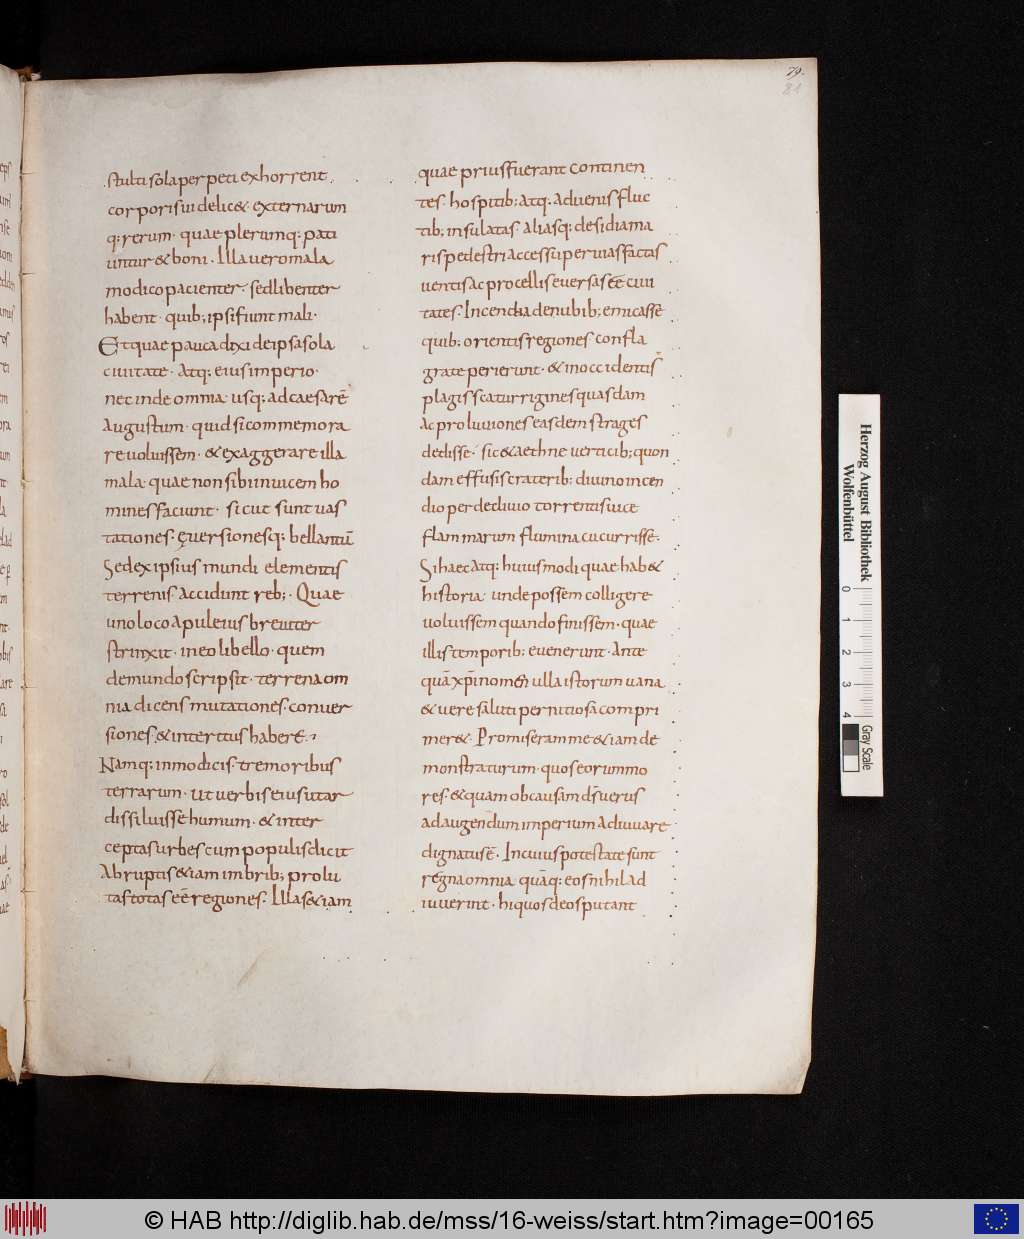 79.
81
stulti sola perpeti exhorrent
corporis uidelic&. externarum
q: rerum. quae plerumq: pati
untur & boni. Illa uero mala
modico pacienter. sed libenter
habent. quib; ipsi fiunt mali.
Et quae pauca dixi de ipsa sola
ciuitate. Atq: eius imperio.
nec inde omnia usq: ad caesarē
Augustum. quid si commemora
re uoluissem. & exaggerare illa
mala quae non sibi inuicem ho
mines faciunt. sicut sunt uas
tationes. ęuersionesq: bellantiū
Sed ex ipsius mundi elementis
terrenis accidunt reb;. Quae
uno loco apuleius breuiter
strinxit. in eo libello. quem
de mundo scripsit. terrena om
nia dicens mutationes. conuer
siones. & interitus haberē.
Namq: inmodicis. tremoribus
terrarum. ut uerbis eius utar
dissiluisse humum. & inter
ceptas urbes cum populis dicit
Abruptis & iam imbrib; prolu
tas totas eē regiones. Illas & iam
quae prius fuerant continen
tes. hospitib; atq: aduenis fluc
tib; insulatas. aliasq: desidia ma
ris pedestri accessu peruias factas
uentis ac procellis euersas eē ciui
tates. Incendia de nubib; emicasse
quib: orientis regiones confla
grate perierunt. & in occidentis
plagis scaturrigines quasdam
Ac proluuiones easdem strages
dedisse. sic & aethne uerticib; quon
dam effusis craterib; diuino incen
dio per decliuio torrentis uice
flammarum flumina cucurrisse.
Si haec atq: huiusmodi quae hab&
historia unde possem colligere
uoluissem quando finissem. quae
illis temporib; euenerunt. Ante
quā xp̄i nomen ulla istorum uana
& uere saluti pernitiosa compri
mer&. Promiseram me & iam de
monstraturum. quos eorum mo
res. & quam ob causam dš uerus
ad augendum imperium adiuuare
dignatus ē. In cuius potestate sunt
regna omnia quāq: eos nihil ad
iuuerint. hi quos deos putant
Herzog August Bibliothek
Wolfenbüttel
0 1 2 3 4
Gray Scale
© HAB http://diglib.hab.de/mss/16-weiss/start.htm?image=00165